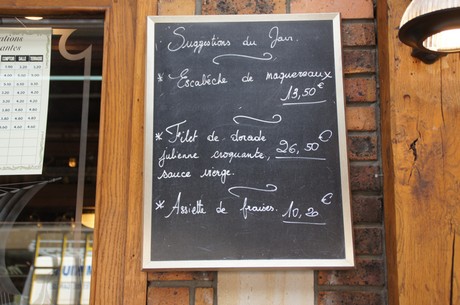 Suggestions du Jour.
* Escabèche de maquereaux
13,50€
* Filet de dorade
julienne croquante, 26,50€
sauce vierge.
* Assiette de fraises. 10,20€
COMPTOIR SALLE TERRASSE